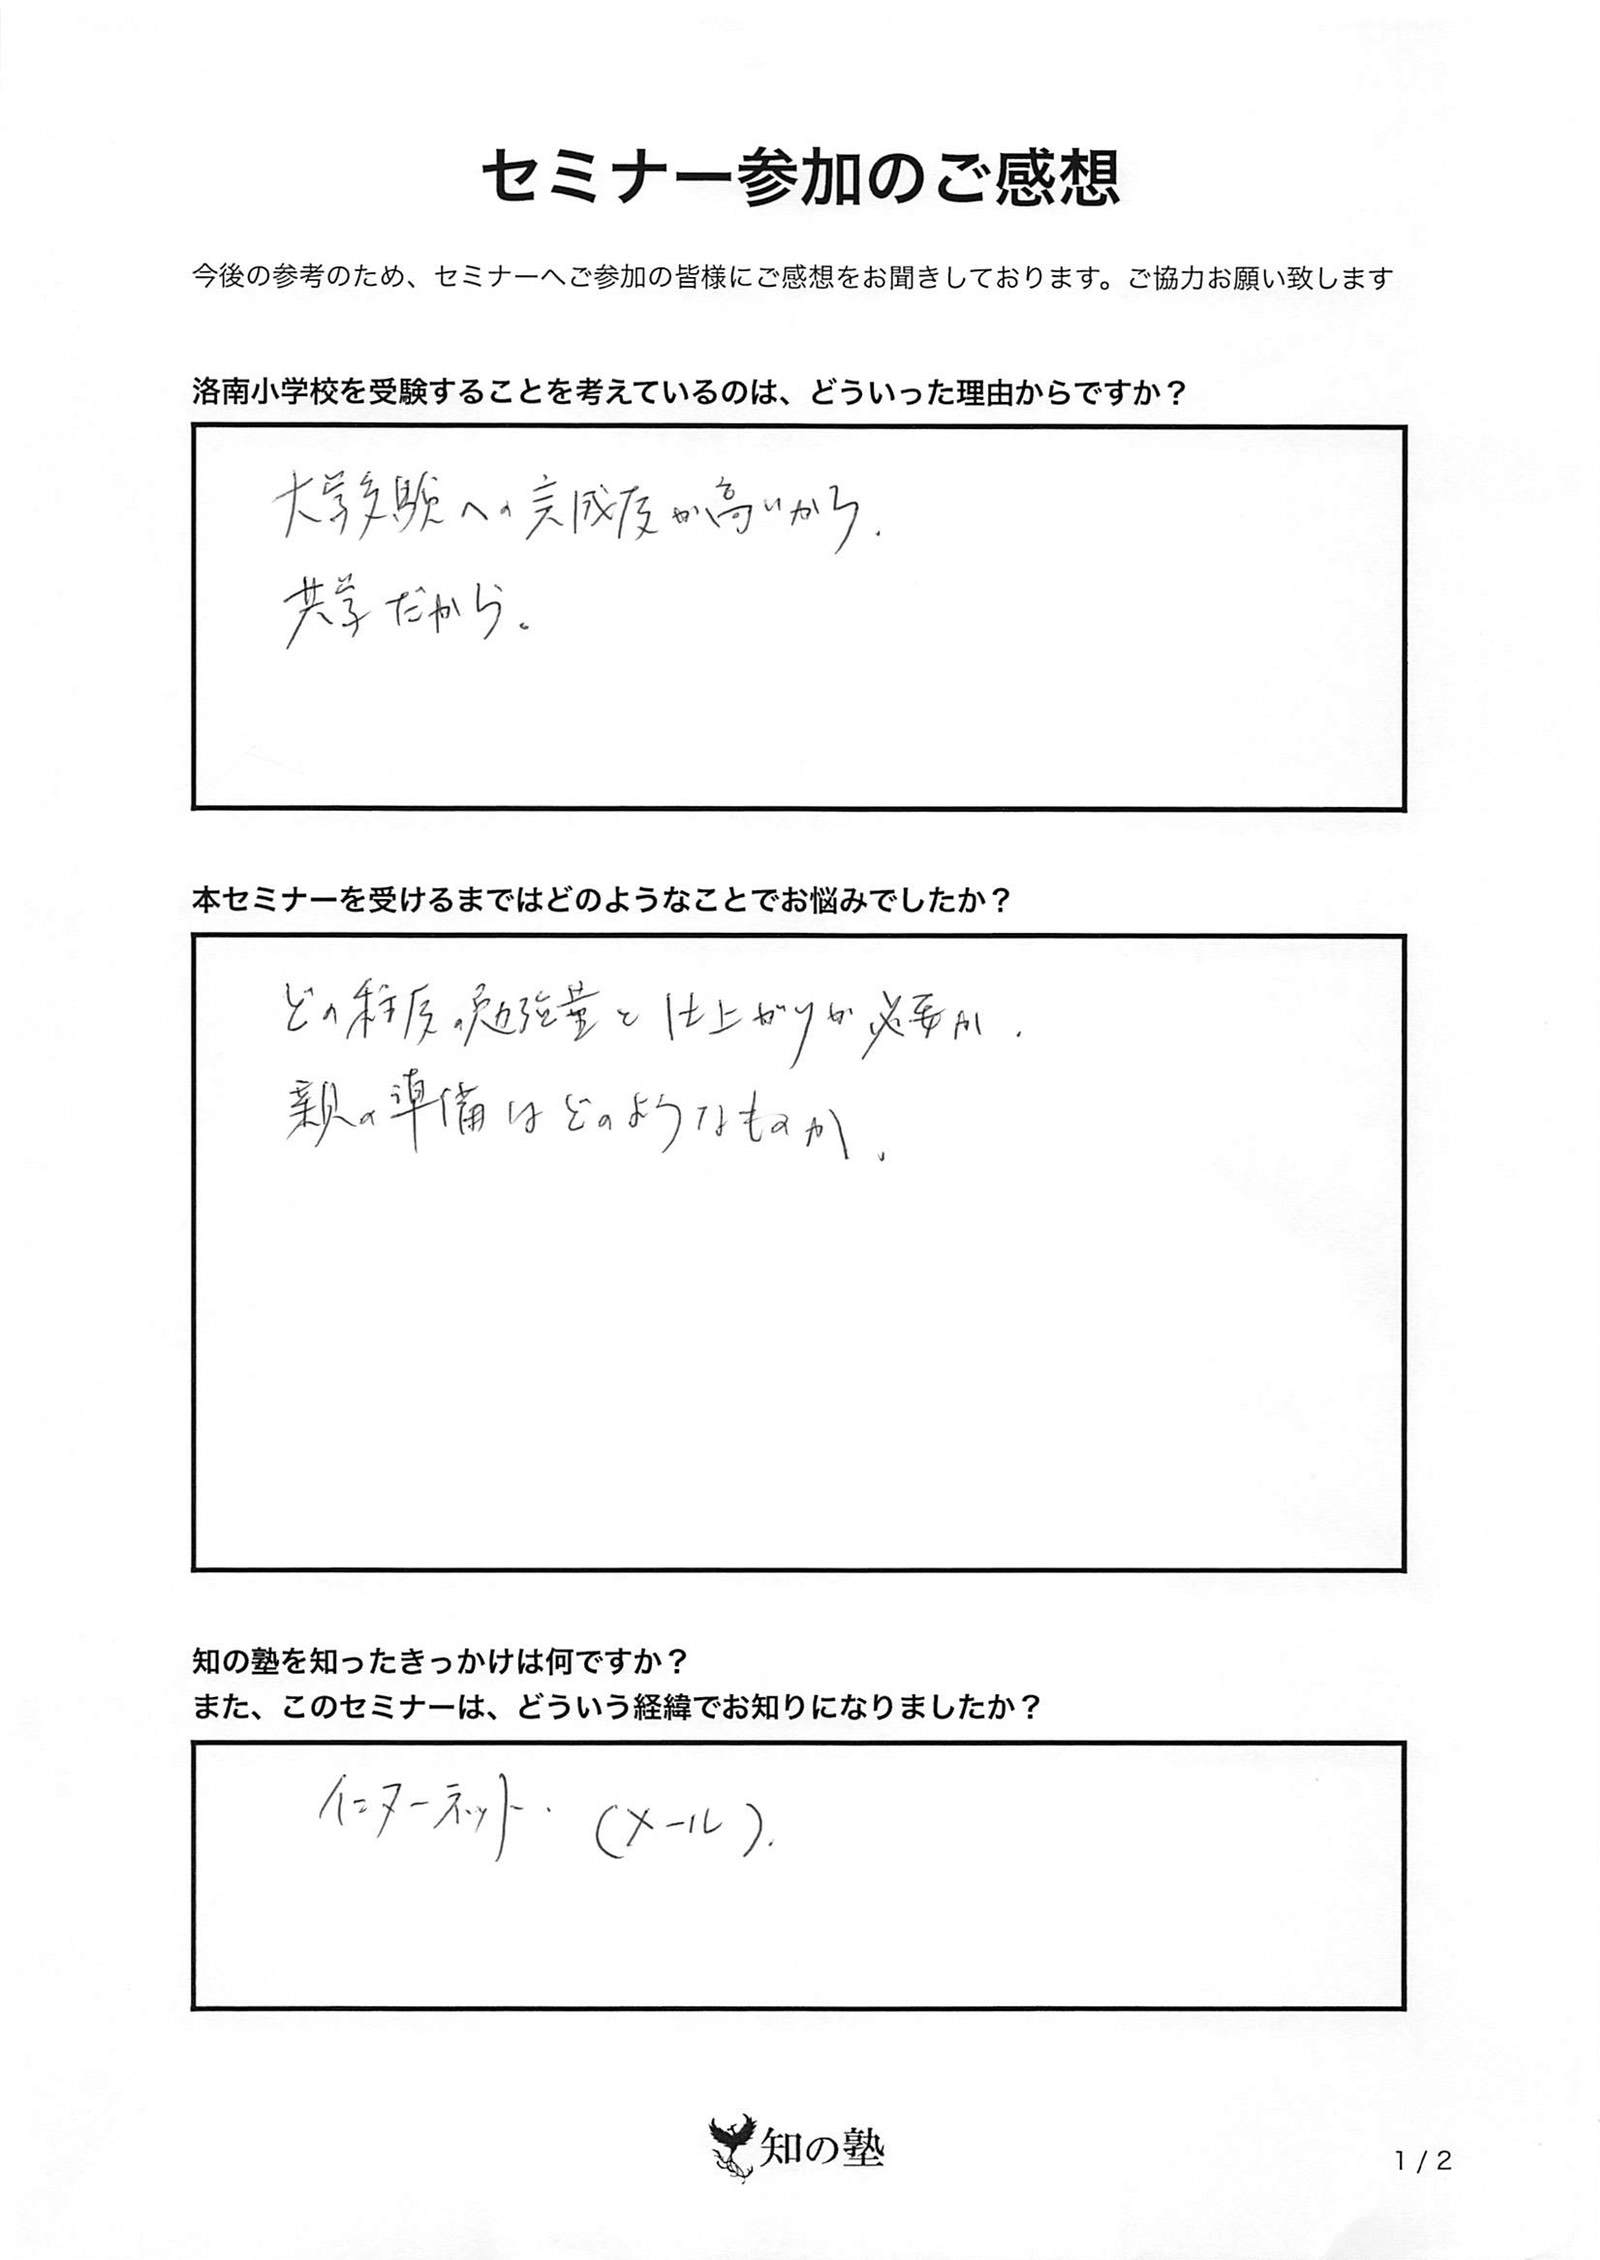 セミナー参加のご感想
今後の参考のため、セミナーへご参加の皆様にご感想をお聞きしております。ご協力お願い致します
洛南小学校を受験することを考えているのは、どういった理由からですか？
大学受験への完成度が高いから.
共学だから。
本セミナーを受けるまではどのようなことでお悩みでしたか？
どの程度の勉強量と仕上がりが必要か.
親の準備はどのようなものか、
知の塾を知ったきっかけは何ですか？
また、このセミナーは、どういう経緯でお知りになりましたか？
インターネット. (メール).
知の塾
1 / 2